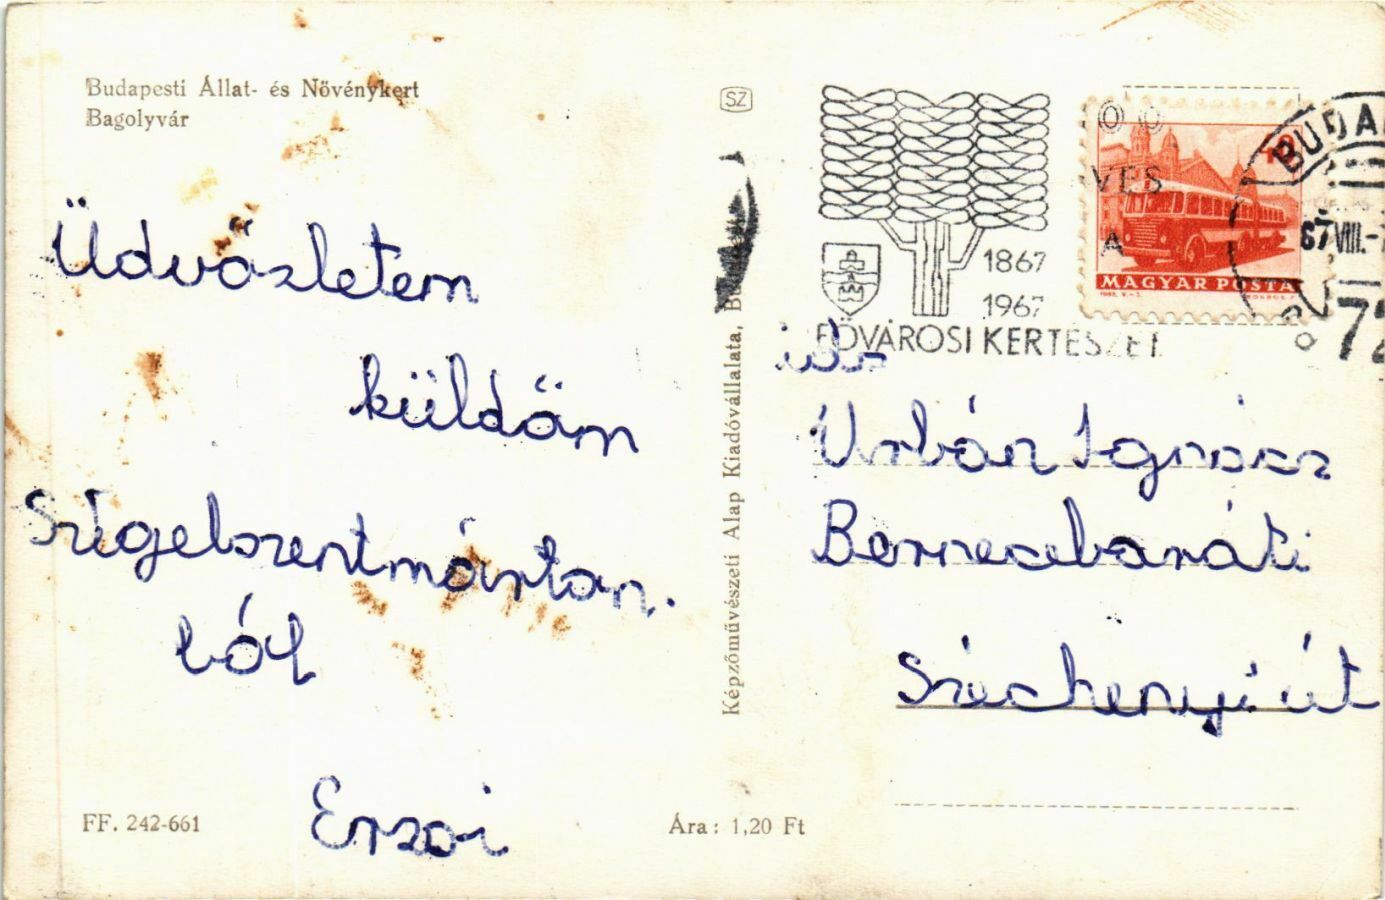 Budapesti Állat- és Növénykert
Bagolyvár
Üdvözletem
küldöm
Szigetszentmárton.
ból
Erzsi
FF. 242-661
Ára: 1,20 Ft
SZ
Képzőművészeti Alap Kiadóvállalata, B
1867
1967
FŐVÁROSI KERTÉSZET
MAGYAR POSTA
BUDA
67 VIII.-
72
id.
Urbán Ignácz
Bernecebaráti
Széchenyi út